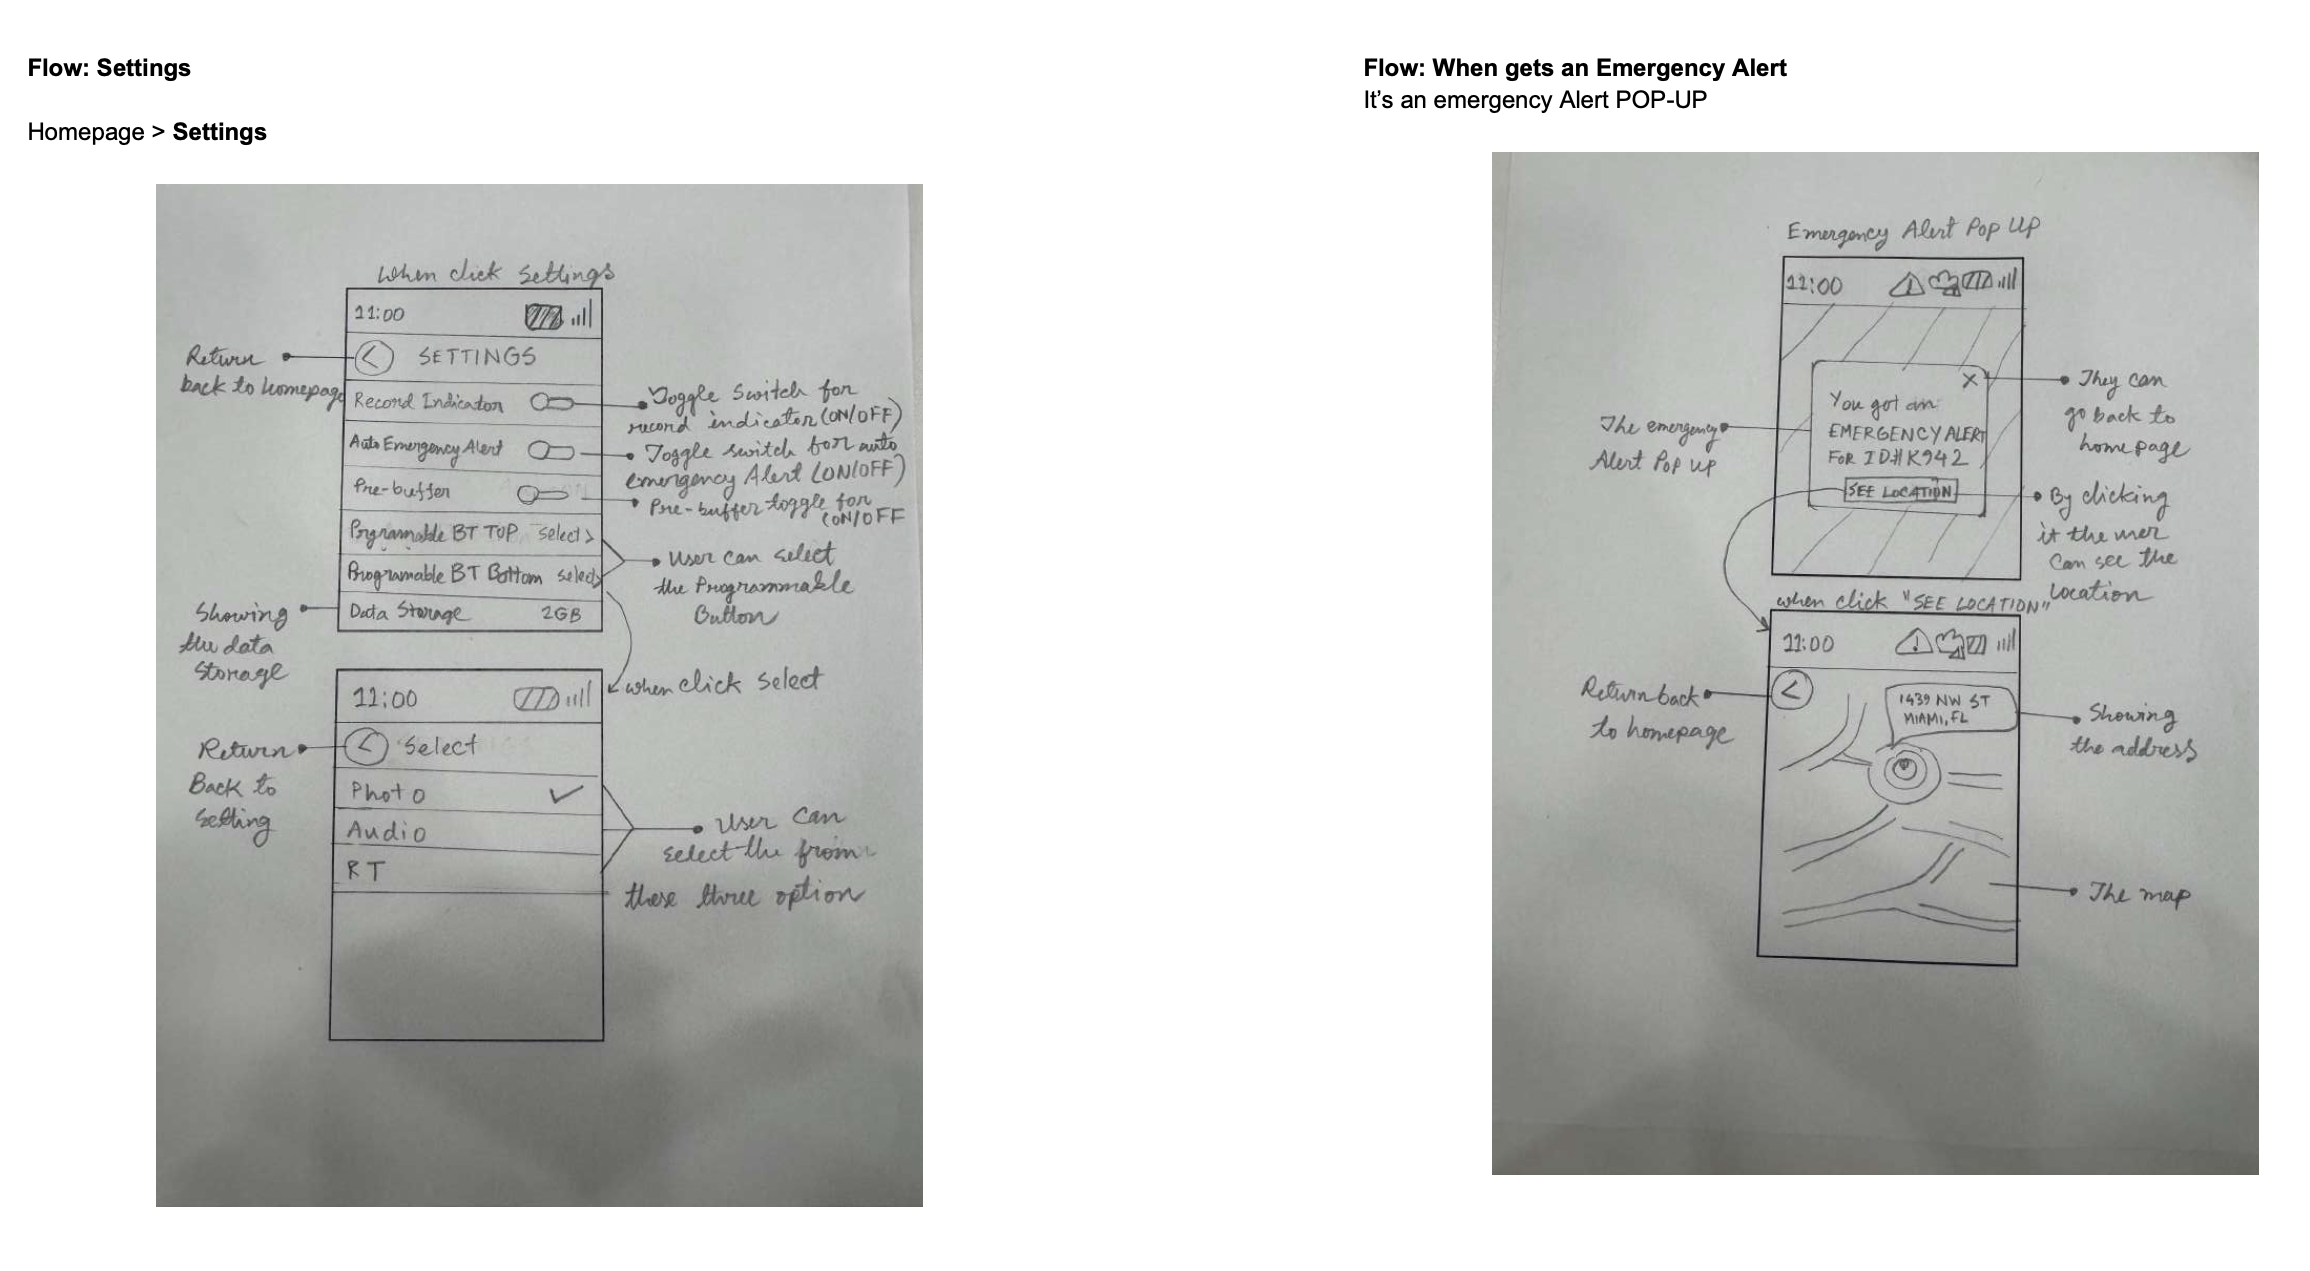 Flow: Settings
Homepage > Settings
When click Settings
11:00
Return
back to homepage
SETTINGS
Record Indicator
Toggle Switch for
record indicator (ON/OFF)
Auto Emergency Alert
Toggle switch for auto
emergency Alert (ON/OFF)
Pre-buffer
Pre-buffer toggle for
(ON/OFF
Prgramable BT TOP select >
Programable BT Bottom select>
User can select
the Programmable
Button
Showing
the data
Storage
Data Storage 2GB
when click select
11:00
Return
Back to
Setting
< Select
Photo ✓
Audio
RT
User can
select the from
these three option
Flow: When gets an Emergency Alert
It’s an emergency Alert POP-UP
Emergency Alert Pop UP
11:00
X
They can
go back to
home page
The emergency
Alert Pop up
You got an
EMERGENCY ALERT
FOR ID# K942
SEE LOCATION
By clicking
it the user
can see the
Location
when click "SEE LOCATION"
11:00
Return back
to homepage
<
1439 NW ST
MIAMI, FL
Showing
the address
The map